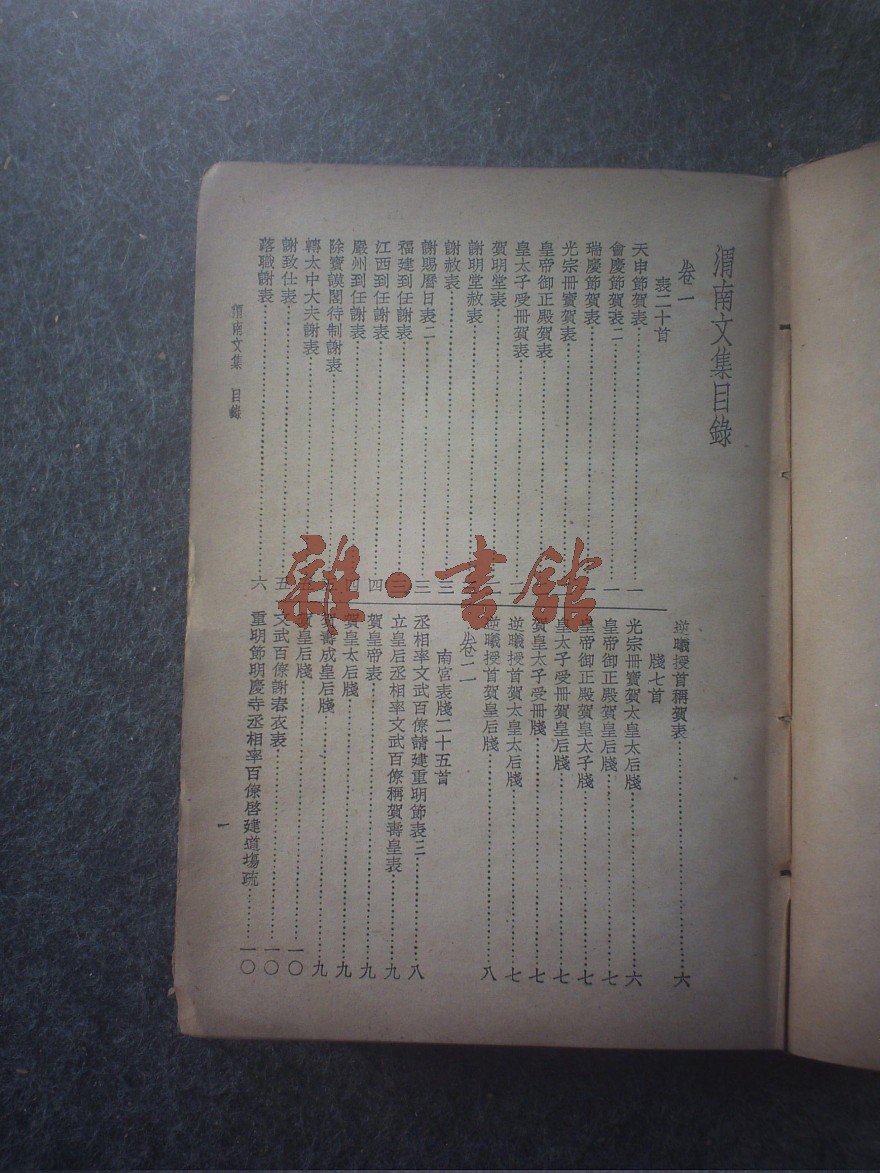 渭南文集目錄
卷一
表二十首
天申節賀表……一
會慶節賀表二……一
瑞慶節賀表……
光宗冊寶賀表……
皇帝御正殿賀表……
皇太子受冊賀表……二
賀明堂表……二
謝明堂赦表……
謝赦表……三
謝賜曆日表二……三
福建到任謝表……三
江西到任謝表……四
嚴州到任謝表……四
除寶謨閣待制謝表……
轉太中大夫謝表……
謝致仕表……五
落職謝表……六
逆曦授首稱賀表……六
牋七首
光宗冊寶賀太皇太后牋……六
皇帝御正殿賀皇后牋……七
皇帝御正殿賀皇太子牋……七
皇太子受冊賀皇后牋……七
賀皇太子受冊牋……七
逆曦授首賀太皇太后牋……七
逆曦授首賀皇后牋……八
卷二
南宮表牋二十五首
丞相率文武百僚請建重明節表三……八
立皇后丞相率文武百僚稱賀壽皇表……九
賀皇帝表……九
賀皇太后牋……九
賀壽成皇后牋……九
賀皇后牋……一〇
文武百僚謝春衣表……一〇
重明節明慶寺丞相率百僚啓建道場疏……一〇
渭南文集 目錄
一
雜·書館